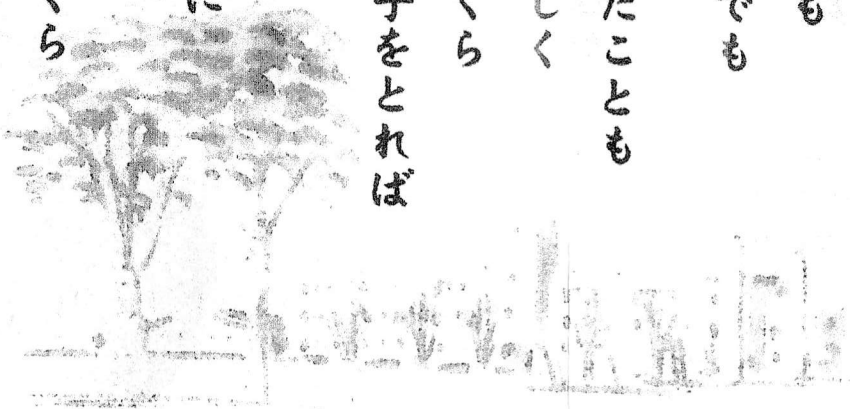 も
でも
たことも
しく
くら
手をとれば
に
くら